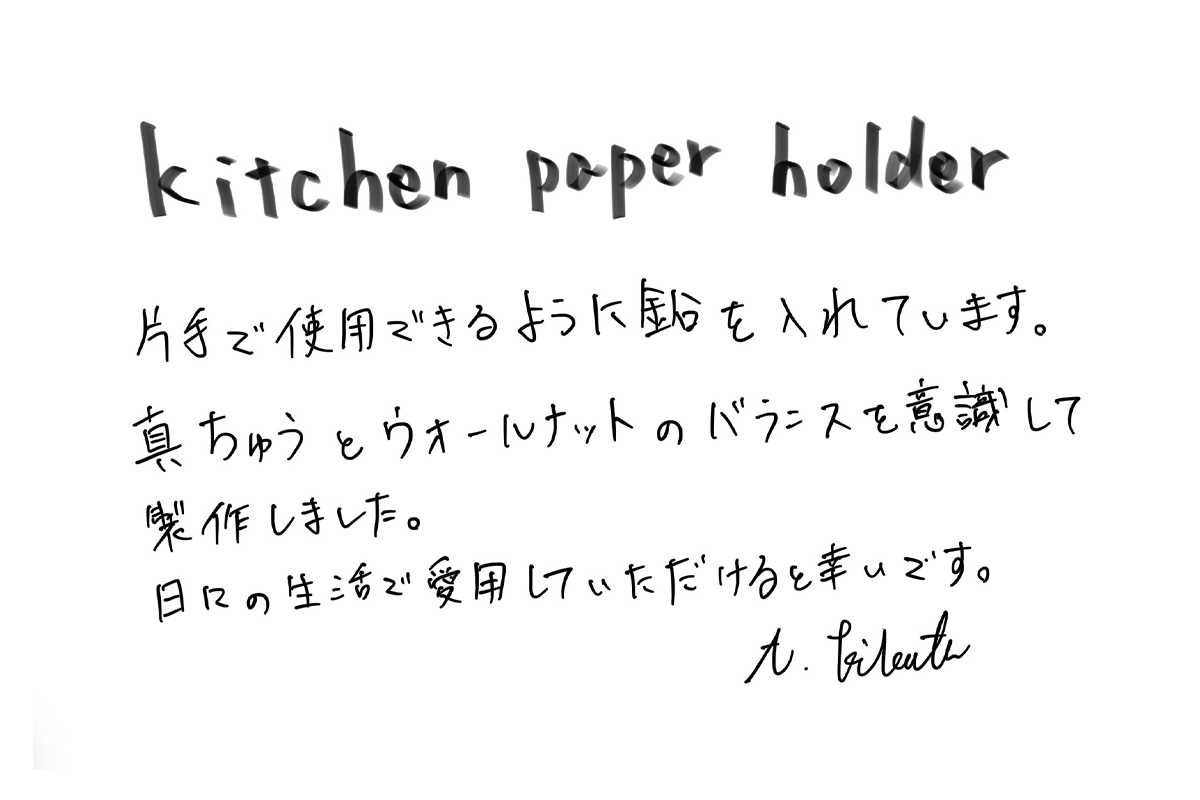 kitchen paper holder
片手で使用できるように鉛を入れています。
真ちゅうとウォールナットのバランスを意識して
製作しました。
日々の生活で愛用していただけると幸いです。
t.